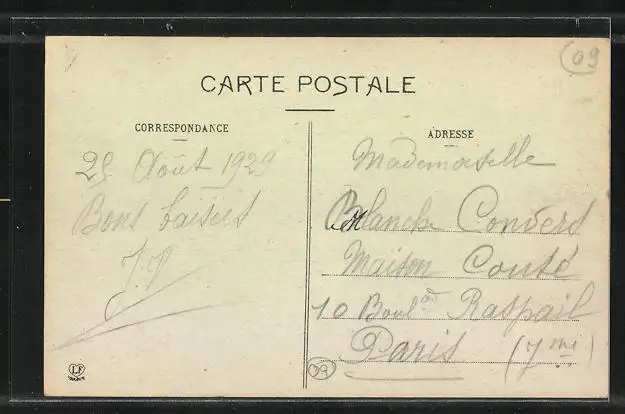 09
CARTE POSTALE
CORRESPONDANCE
25 Août 1929
Bons baisers
ADRESSE
Mademoiselle
Blanche Convers
Maison Couté
10 Boul^d Raspail
Paris (7me)
LF